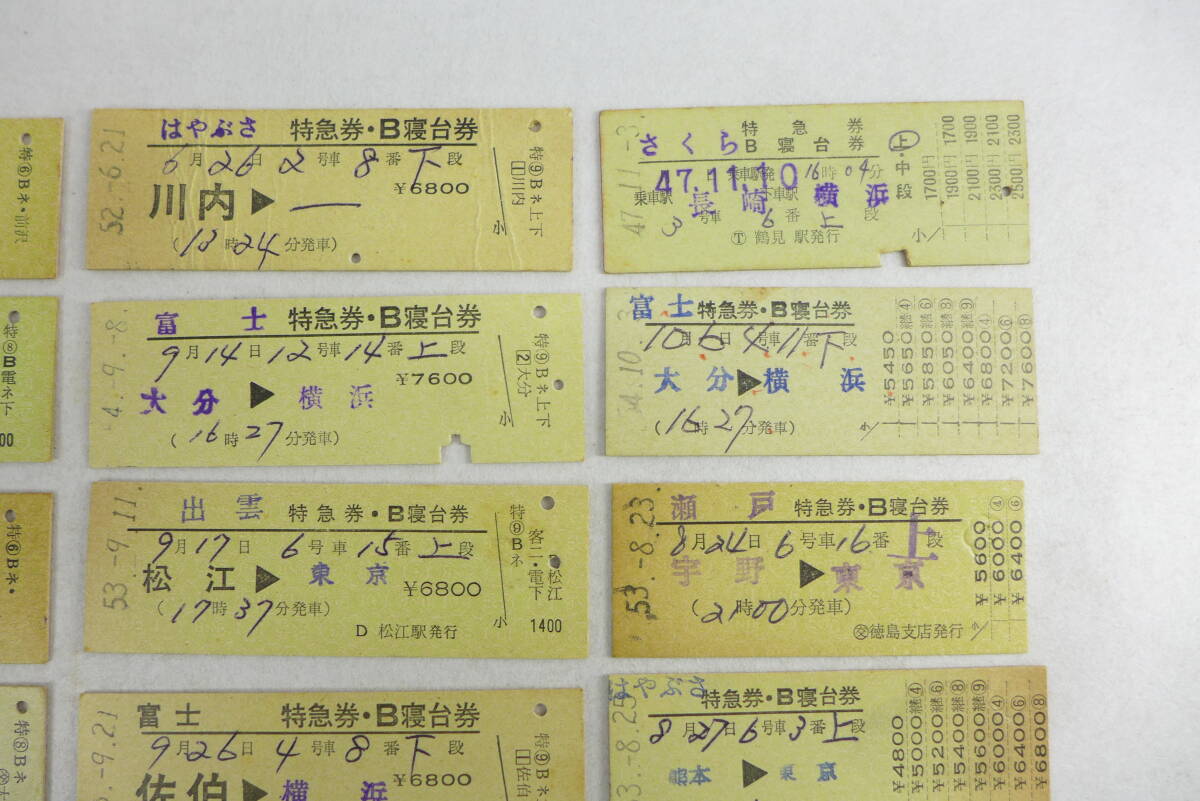 特⑥Bネ・前沢
52.-6.21
はやぶさ 特急券・B寝台券
6月26日2号車8番下段
¥6800
川内▶
(18時24分発車)
特⑨Bネ上下
1川内
小
47.11.-3
さくら 特急券
B寝台券
上・中段
乗車駅発16時04分
47.11.10
乗車駅 下車駅
長崎 横浜
3号車6番上段
Ⓣ鶴見駅発行
小
1700円 1700
1900円 1900
2100円 2100
2300円 2300
特⑧B電ネ下
00
4.-9.-8.
富士 特急券・B寝台券
9月14日12号車14番上段
¥7600
大分▶横浜
(16時27分発車)
特⑨Bネ上下
2大分
小
富士 特急券・B寝台券
10月6日4号車11番下段
大分▶横浜
(16時27分発車)
小
¥5450
¥5650継④
¥5850継⑥
¥6050継⑧
¥6400継⑨
¥6800④
¥7200⑥
¥7600⑧
特⑥Bネ・
53.-9.11
出雲 特急券・B寝台券
9月17日6号車15番上段
松江▶東京
¥6800
(17時37分発車)
D 松江駅発行
特⑨Bネ
客二・電下
松江
小 1400
53.-8.23
瀬戸 特急券・B寝台券
8月24日6号車16番上段
宇野▶東京
(21時00分発車)
㊋徳島支店発行
小
¥5600
¥6000④
¥6400⑥
特⑧Bネ
-9.21
富士 特急券・B寝台券
9月26日4号車8番下段
¥6800
佐伯▶横浜
特⑨Bネ
1佐伯
53.-8.25
はやぶさ 特急券・B寝台券
8月27日6号車3番上段
熊本▶東京
¥4800
¥5000継④
¥5200継⑥
¥5400継⑧
¥5600継⑨
¥6000④
¥6400⑥
¥6800⑧